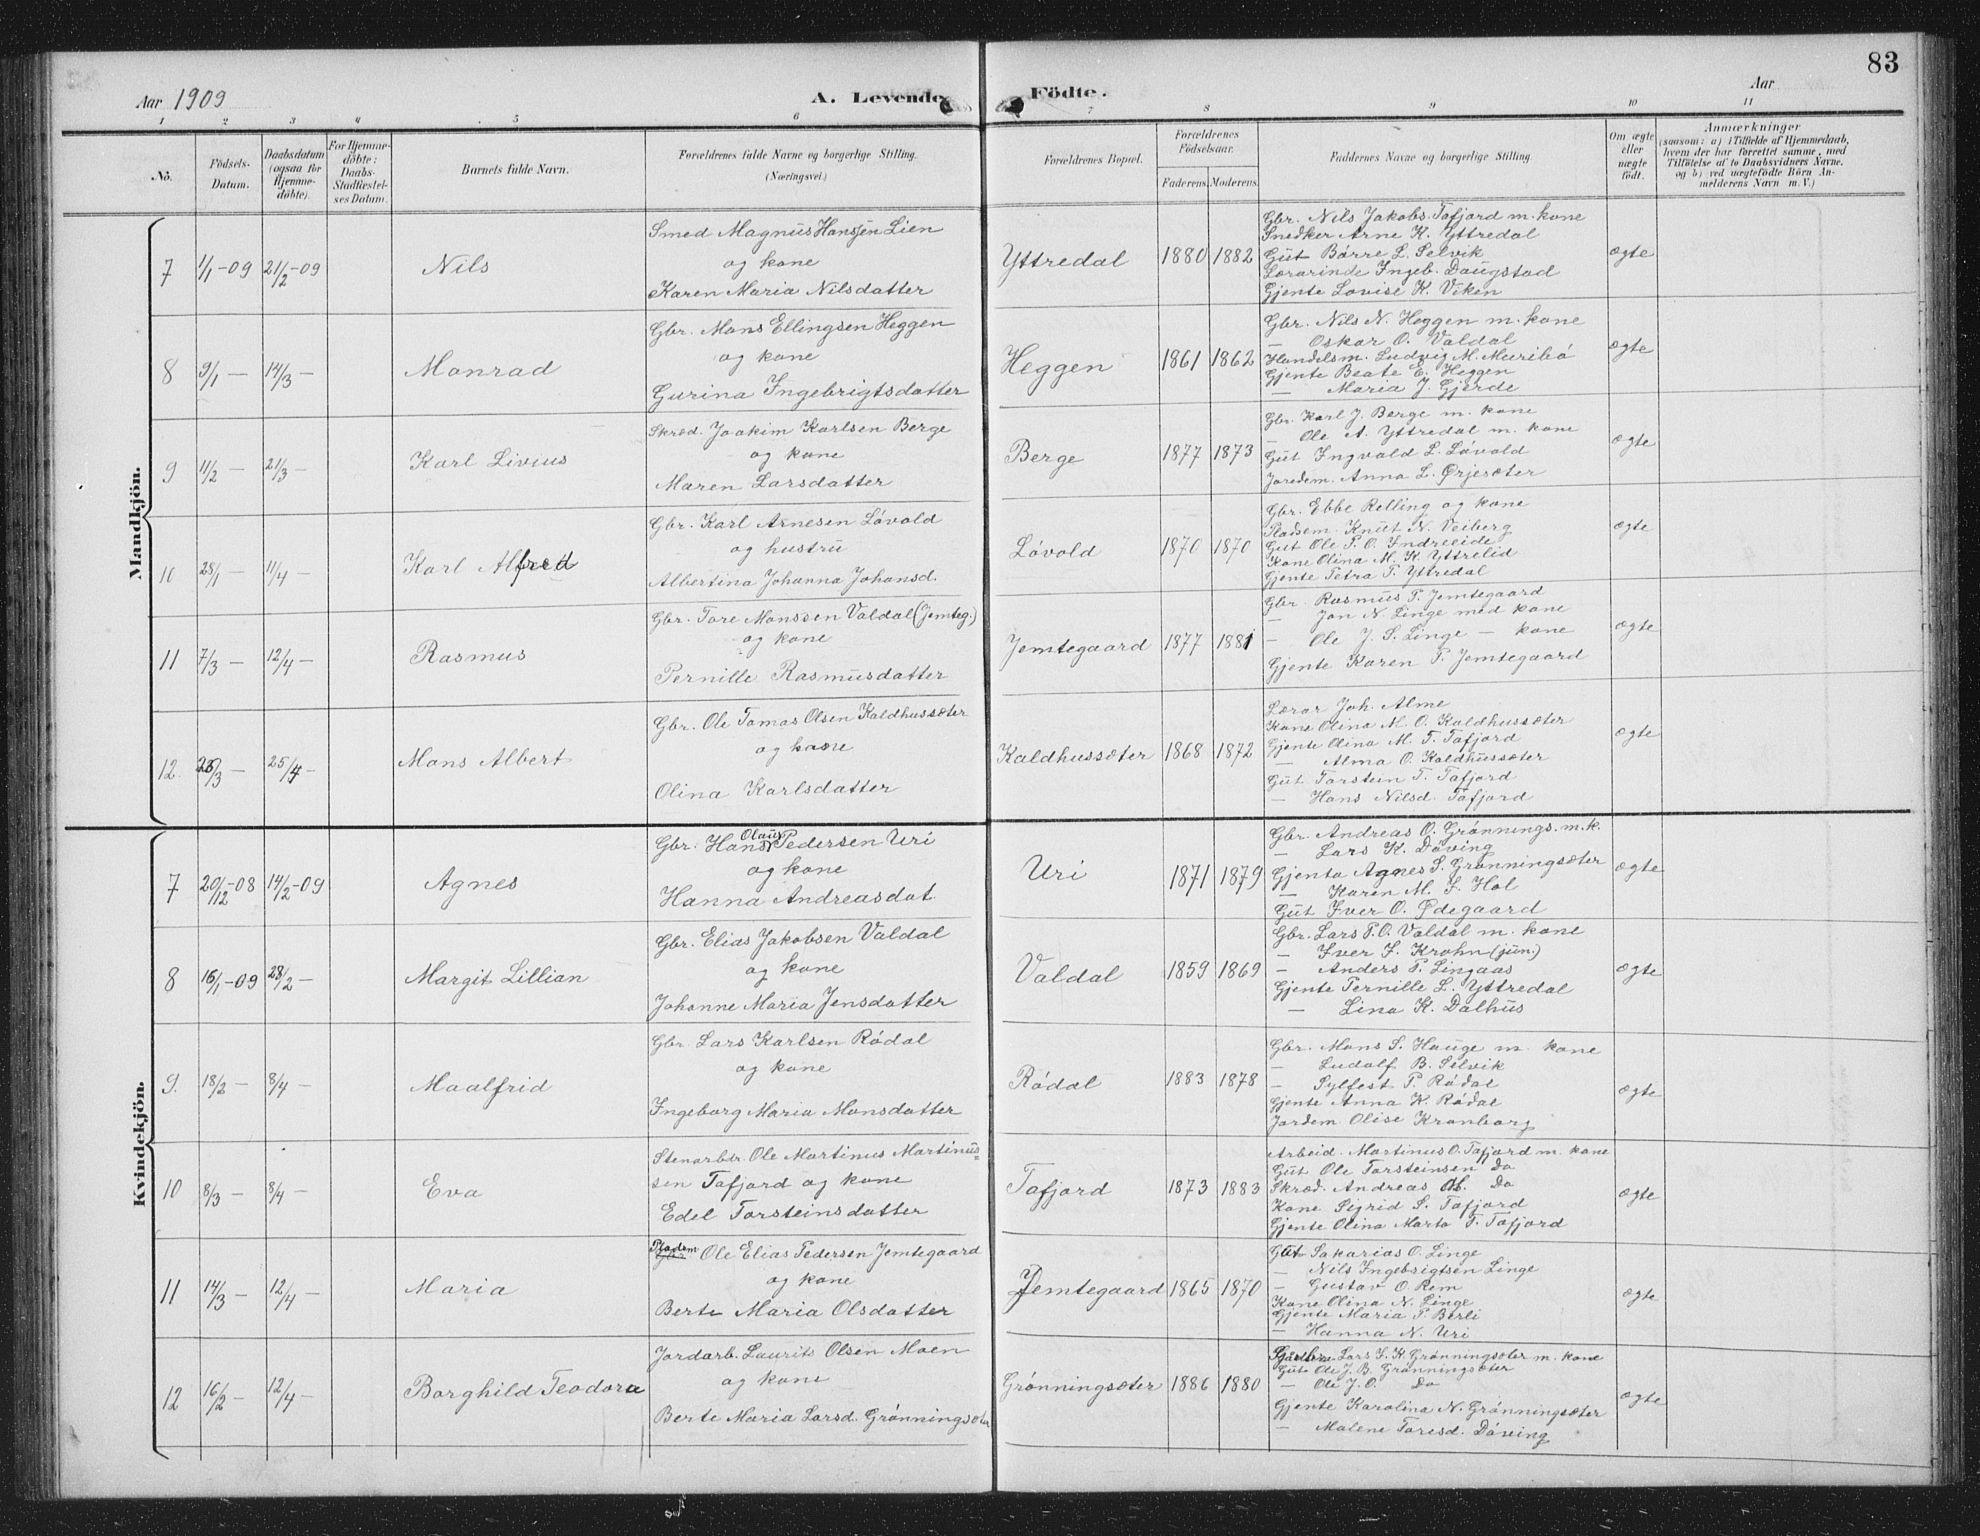 83
Aar 1909
A. Levende Födte.
Aar
1 2 3 4 5 6 7 8 9 10 11
No.
Födsels-Datum.
Daabsdatum (ogsaa for Hjemme-döbte).
For Hjemme-döbte: Daabs-Stadfæstel-ses Datum.
Barnets fulde Navn.
Forældrenes fulde Navne og borgerlige Stilling.
(Næringsvei.)
Forældrenes Bopæl.
Forældrenes Födselsaar.
Faderens. Moderens.
Faddernes Navne og borgerlige Stilling.
Om ægte eller uægte födt.
Anmærkninger
(saasom: a) i Tilfælde af Hjemmedaab, hvem der har forrettet samme, med Tilföielse af to Daabsvidners Navne, og b) ved uægtefödte Börn An-melderens Navn m. V.)
Mandkjön.
7 1/1-09 21/2-09 Nils
Smed Magnus Hansen Lien
og kone
Karen Maria Nilsdatter
Yttredal 1880 1882
Gbr. Nils Jakobs. Tafjord m. kone
Snedker Arne K. Yttredal
Gut Børre L. Selvik
Lærarinde Ingeb. Daugstad
Gjente Lovise K. Viken
ægte
8 9/1 — 14/3 — Monrad
Gbr. Mons Ellingsen Heggen
og kone
Gurina Ingebrigtsdatter
Heggen 1861 1862
Gbr. Nils N. Heggen m. kone
— Oskar O. Valdal
Handelsm. Ludvig M. Muribø
Gjente Beate E. Heggen
— Maria J. Gjerde
ægte
9 11/2 — 21/3 — Karl Livius
Skræd. Joakim Karlsen Berge
og kone
Maren Larsdatter
Berge 1877 1873
Gbr. Karl J. Berge m. kone
— Ole A. Yttredal m. kone
Gut Ingvald L. Løvold
Jordem. Anna L. Ørjesæter
ægte
10 28/1 — 11/4 — Karl Alfred
Gbr. Karl Arnesen Løvold
og hustru
Albertina Johanna Johansd.
Løvold 1870 1870
Gbr. Ebbe Relling og kone
Pladsem. Knut N. Veiberg
Gut Ole P. O. Indreeide
Kone Olina M. K. Yttrelid
Gjente Petra P. Yttredal
ægte
11 7/3 — 12/4 — Rasmus
Gbr. Tore Monssen Valdal (Jemteg.)
og kone
Pernille Rasmusdatter
Jemtegaard 1877 1881
Gbr. Rasmus P. Jemtegaard
— Jon N. Linge med kone
— Ole J. S. Linge — kone
Gjente Karen P. Jemtegaard
ægte
12. /3 — 25/4 — Mons Albert
Gbr. Ole Tomas Olsen Kaldhussæter
og kone
Olina Karlsdatter
Kaldhussæter 1868 1872
Lærar Joh. Alme
Kone Olina M. O. Kaldhussæter
Gjente Olina M. T. Tafjord
— Alma O. Kaldhussæter
Gut Torstein T. Tafjord
— Hans Nilsd. Tafjord
ægte
Kvindekjön.
7 20/12-08 14/2-09 Agnes
Gbr. Hans Olaus Pedersen Uri
og kone
Hanna Andreasdat.
Uri 1871 1879
Gbr. Andreas O. Grønnings. m. k.
— Lars K. Døving
Gjenta Agnes S. Grønningsæter
— Karen M. S. Hol
Gut Iver O. Ødegaard
ægte
8 16/1-09 28/2 — Margit Lillian
Gbr. Elias Jakobsen Valdal
og kone
Johanne Maria Jensdatter
Valdal 1859 1869
Gbr. Lars P. O. Valdal m. kone
— Iver I. Krohn (jun.)
— Anders P. Lingaas
Gjente Pernille L. Yttredal
— Lina K. Dalhus
ægte
9. 18/2 — 8/4 — Maalfrid
Gbr. Lars Karlsen Rødal
og kone
Ingeborg Maria Monsdatter
Rødal 1883 1878
Gbr. Mons S. Hauge m. kone
— Ludolf B. Selvik
— Sylfest P. Rødal
Gjente Anna K. Rødal
Jordem. Olise Kronborg
ægte
10 8/3 — 8/4 — Eva
Stenarbdr. Ole Martinus Martinus=
sen Tafjord og kone
Edel Torsteinsdatter
Tafjord 1873 1883
Arbeid. Martinus O. Tafjord m. kone
Gut Ole Torsteinsen Do
Skræd. Andreas M. Do
Kone Sigrid S. Tafjord
Gjente Olina Marta T. Tafjord
ægte
11 14/3 — 12/4 — Maria
Pladsm Gbr. Ole Elias Pedersen Jemtegaard
og kone
Berte Maria Olsdatter
Jemtegaard 1865 1870
Gut Sakarias O. Linge
— Nils Ingebrigtsen Linge
— Gustav O. Rem
Kone Olina N. Linge
Gjente Maria P. Berli
— Hanna N. Uri
ægte
12 16/2 — 12/4 — Borghild Teodora
Jordarb. Laurits Olsen Moen
og kone
Berte Maria Larsd. Grønningsæter
Grønningsæter 1886 1880
Lars S. H. Grønningsæter m. kone
Gut Ole J. B. Grønningsæter
— Ole J. O. Do
Gjente Karolina N. Grønningsæter
— Malene Toresd. Døving
ægte